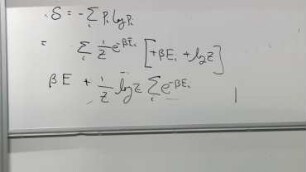 ∴ S = -∑ᵢ Pᵢ log Pᵢ
= ∑ᵢ 1/Z e^{-βEᵢ} [+βEᵢ + log Z]
βE + 1/Z log Z ∑ᵢ e^{-βEᵢ}